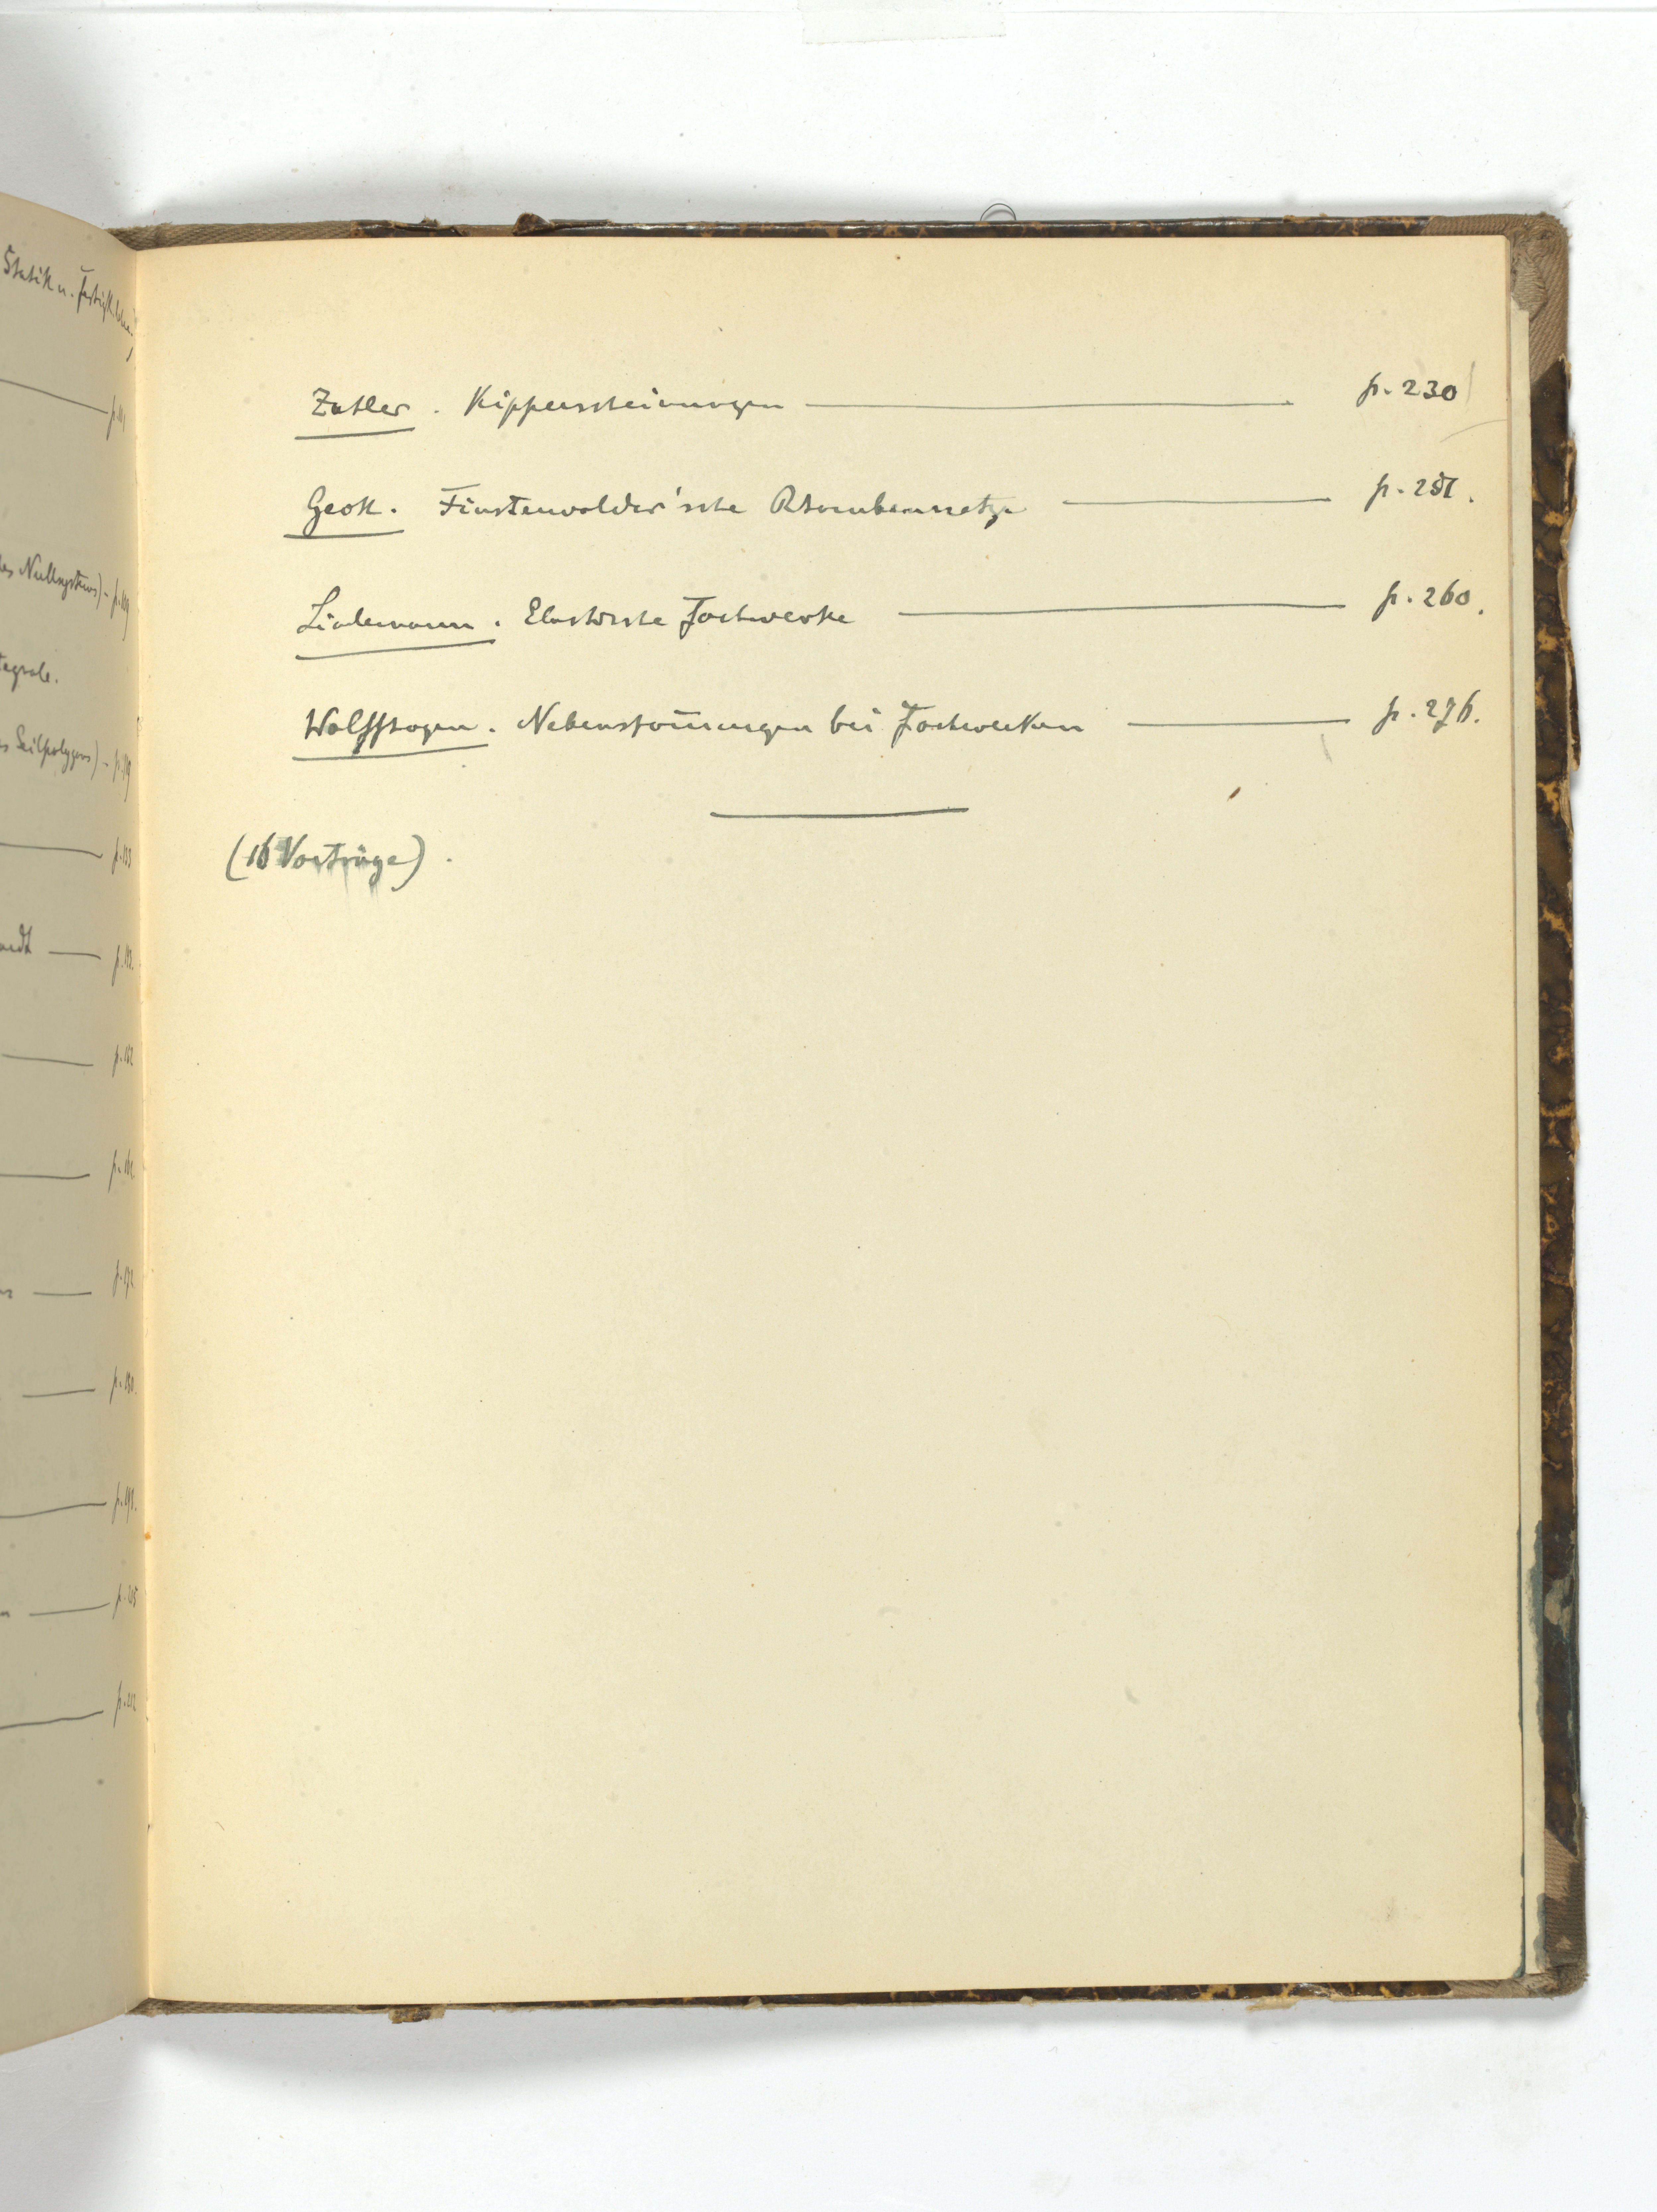 Statik u. Festigk.lehre,
des Nullsystems) - p. 109
tegrale.
s Seilpolygons) - p. 119
p. 133
p. 152
p. 180.
p. 191.
p. 205
p. 212
Zutler. Kipperscheinungen p. 230
Geok. Finsterwalder'sche Rhombennetze p. 251.
Lindemann. Elastische Fachwerke p. 260.
Wolffsogen. Nebenspannungen bei Fachwerken p. 276.
(16 Vorträge).